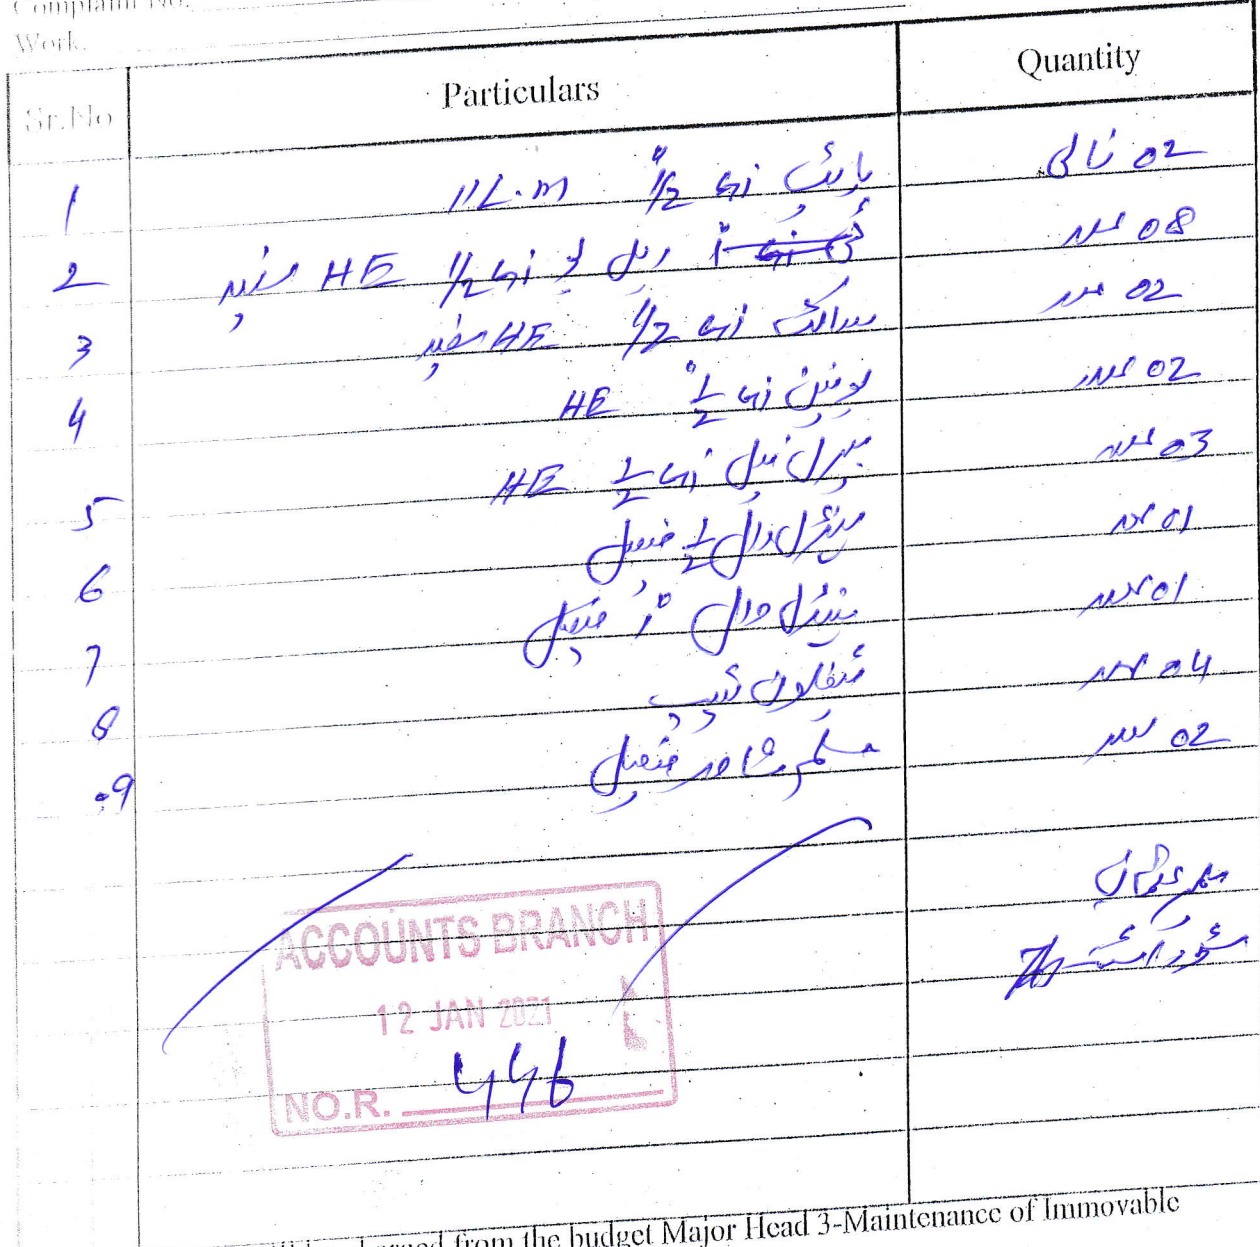 Complaint No.
Work.
Sr.No Particulars Quantity
1 پائپ زیر 1/2" I.L.M 02 نالی
2 1" ایل بو زیر 1/2 HE سفید 08 عدد
3 ساکٹ زیر 1/2 HE سفید 02 عدد
4 یونین زیر 1/2" HE 02 عدد
5 بیرل نپل زیر 1/2 HE 03 عدد
6 وال 1/2 فیصل 01 عدد
7 وال 1" فیصل 01 عدد
8 ٹیفلون ٹیپ 04 عدد
09 مسلم شاور فیصل 02 عدد
محمد عثمان
ACCOUNTS BRANCH
12 JAN 2021
NO.R. 446
from the budget Major Head 3-Maintenance of Immovable